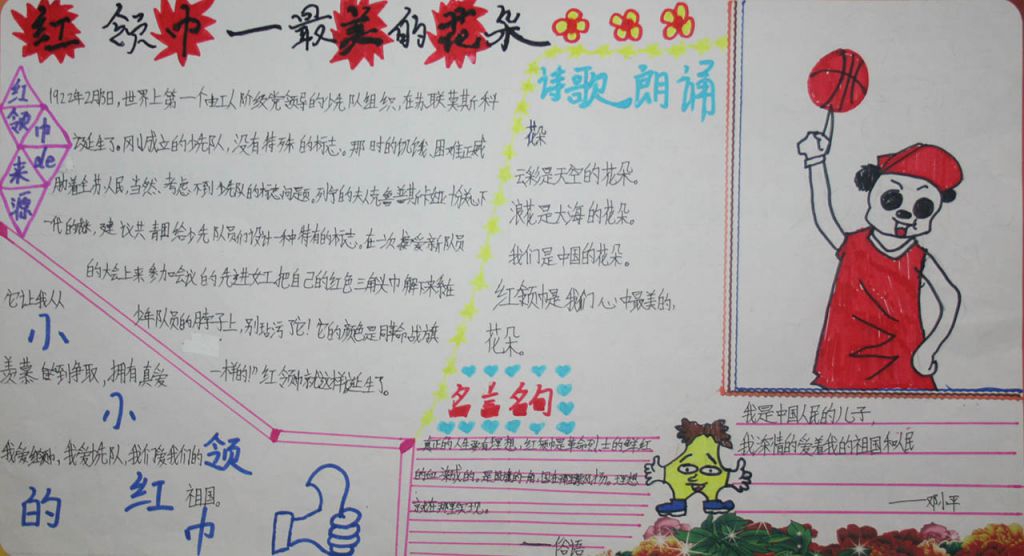 红领巾一最美的花朵
红领巾de来源
1922年2月5日,世界上第一个由工人阶级党领导的少先队组织,在苏联莫斯科
诞生了。刚成立的少先队,没有特殊的标志。那时的饥饿、困难正威
胁着全苏人民,当然,考虑不到少先队的标志问题。列宁的夫人克鲁普斯卡娅十分关心下
一代的
建议共青团给少先队员们设计一种特有的标志。在一次接受新队员
的大会上来参加会议的先进女工把自己的红色三角头巾解下来系在
少年队员的脖子上,别玷污了它!它的颜色是同革命战旗
一样的!"红领巾就这样诞生了。
诗歌朗诵
花朵
云彩是天空的花朵。
浪花是大海的花朵。
我们是中国的花朵。
红领巾是我们心中最美的,
花朵。
它让我从
小
羡慕 到争取,拥有真爱
小
我爱 ,我爱少先队,我们 爱我们的
领
的
红
祖国。
巾
名言名句
真正的人生要有理想,红领巾是革命烈士的鲜红
的血染成的。是 的一角,
理想
就在那里实现。
——俗语
我是中国人民的儿子,
我深情的爱着我的祖国和人民
——邓小平